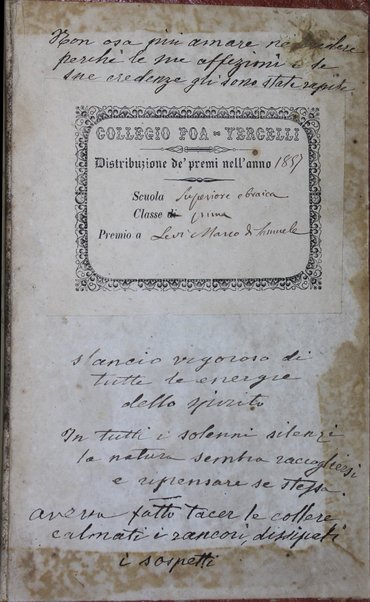 Non osa più amare nè credere
perchè le sue affezioni e le
sue credenze gli sono state rapite.
COLLEGIO FOA - VERCELLI
Distribuzione de' premi nell'anno 1857
Scuola Superiore ebraica
Classe di prima
Premio a Levi Marco di Samuele
slancio vigoroso di
tutte le energie
dello spirito
In tutti i solenni silenzi
la natura sembra raccogliersi
e ripensare se stessa.
aveva fatto tacer le collere
calmati i rancori, dissipati
i sospetti